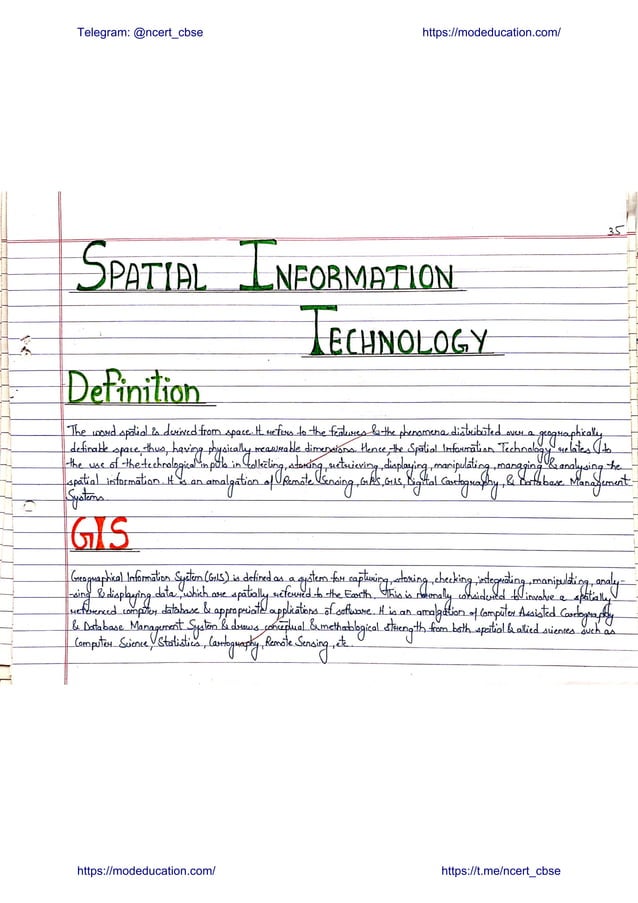 Telegram: @ncert_cbse https://modeducation.com/
35
SPATIAL INFORMATION
TECHNOLOGY
Definition
The word spatial is derived from space. It refers to the features & the phenomena distributed over a geographically
definable space, thus, having physically measurable dimensions. Hence, the Spatial Information Technology relates to
the use of the technological inputs in collecting, storing, retrieving, displaying, manipulating, managing & analysing the
spatial information. It is an amalgation of Remote Sensing, GPS, GIS, Digital Cartography, & Database Management
Systems.
GIS
Geographical Information System (GIS) is defined as a system for capturing, storing, checking, integrating, manipulating, analy-
-sing & displaying data, which are spatially referred to the Earth. This is normally considered to involve a spatially
referenced computer database & appropriate applications of software. It is an amalgation of Computer Assisted Cartography
& Database Management System & draws conceptual & methablogical strength from both spatial & allied sciences such as
Computer Science, Statistics, Cartography, Remote Sensing, etc.
https://modeducation.com/ https://t.me/ncert_cbse